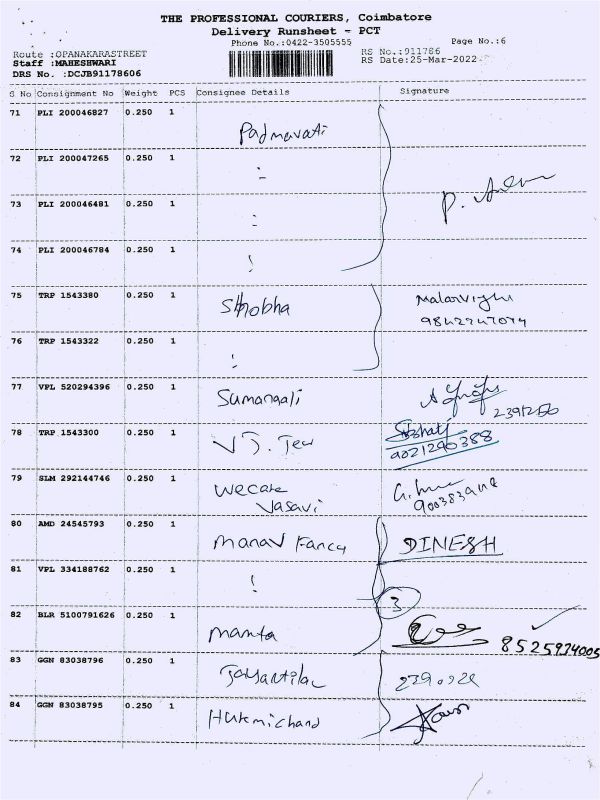 THE PROFESSIONAL COURIERS, Coimbatore
Delivery Runsheet - PCT
Phone No.:0422-3505555
Page No.:6
Route :OPANAKARASTREET
RS No.:911786
Staff :MAHESHWARI
RS Date:25-Mar-2022
DRS No. :DCJB91178606
S No Consignment No Weight PCS Consignee Details Signature
71 PLI 200046827 0.250 1 Padmavati
72 PLI 200047265 0.250 1
73 PLI 200046481 0.250 1 P.
74 PLI 200046784 0.250 1
75 TRP 1543380 0.250 1 Shobha
76 TRP 1543322 0.250 1
77 VPL 520294396 0.250 1 Sumangali
78 TRP 1543300 0.250 1 9021290388
79 SLM 292144746 0.250 1 Wecare
Vasavi
80 AMD 24545793 0.250 1 Manav Fancy DINESH
81 VPL 334188762 0.250 1
3
82 BLR 5100791626 0.250 1 Mamta 8525974005
83 GGN 83038796 0.250 1 Jayantilal
84 GGN 83038795 0.250 1 Hukmichand